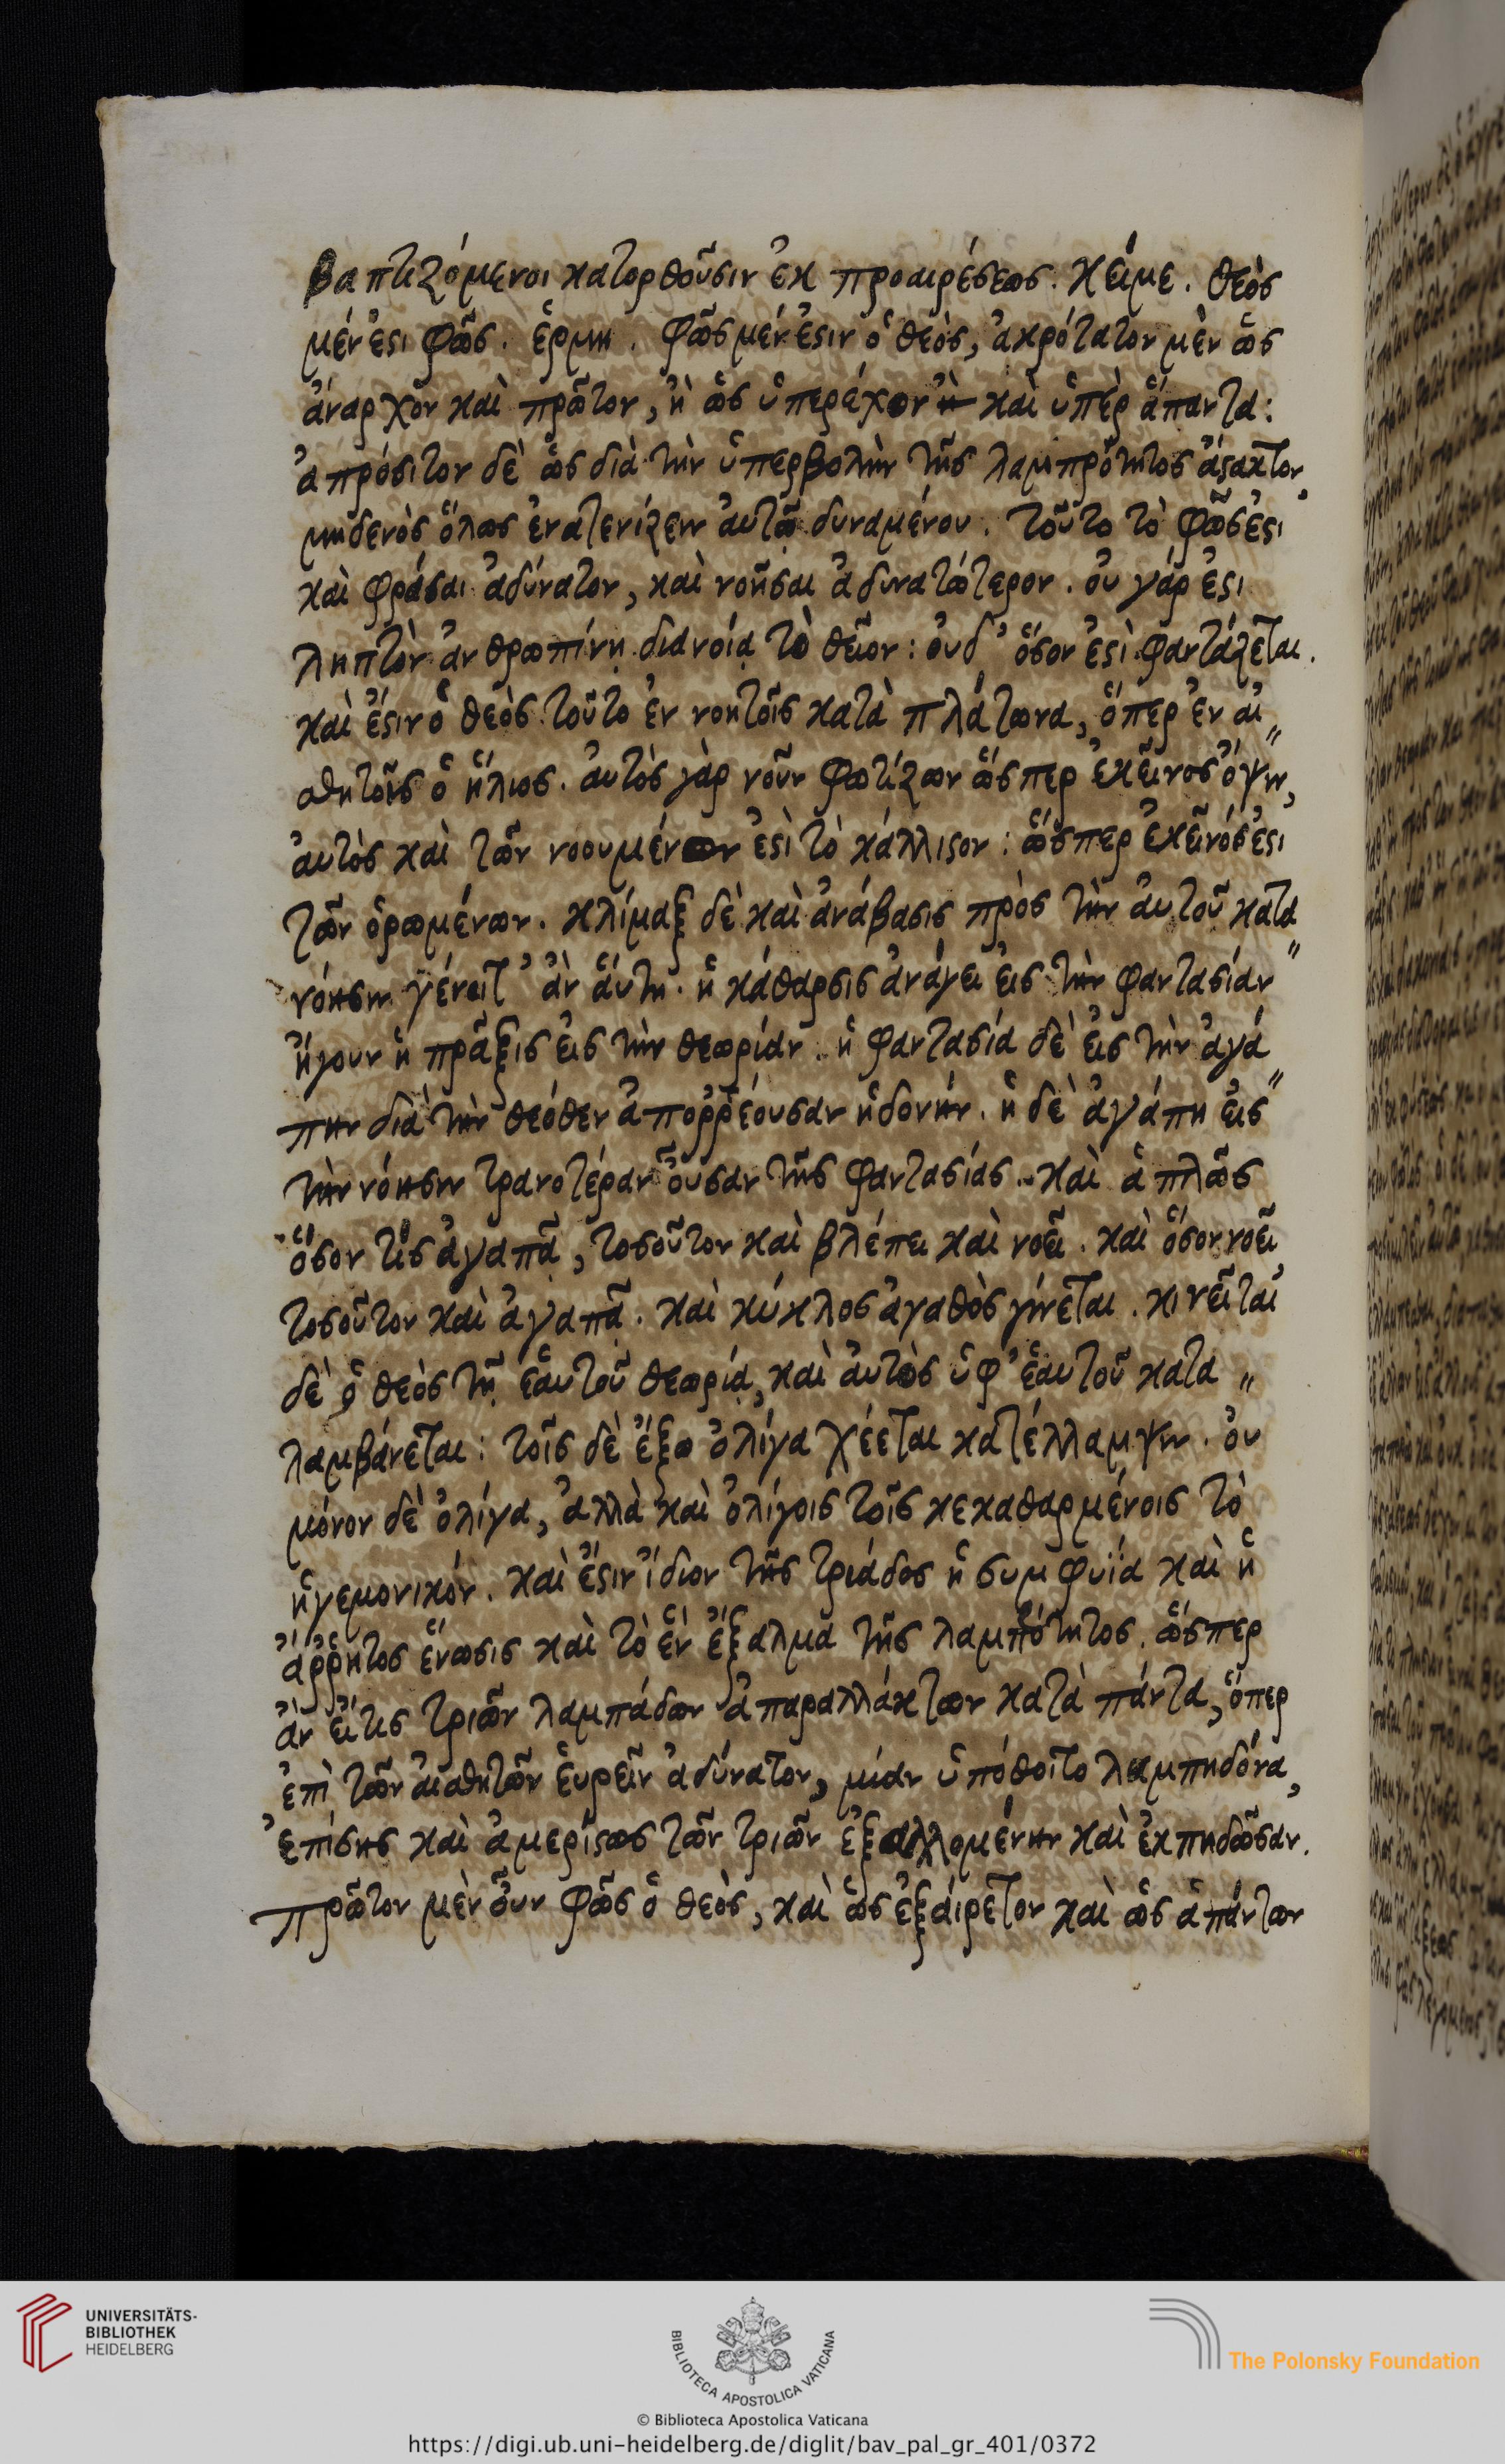 βαπτιζόμενοι κατορθοῦσιν ἐκ προαιρέσεως. κείμε. θεὸς
μέν ἐστι φῶς. ἑρμη. φῶς μέν ἐστιν ὁ θεὸς, ἀκρότατον μὲν ὡς
ἄναρχον καὶ πρῶτον, ἢ ὡς ὑπερέχον καὶ ὑπὲρ ἅπαντα:
ἀπρόσιτον δὲ ὡς διὰ τὴν ὑπερβολὴν τῆς λαμπρότητος ἄστακτον,
μηδενὸς ὅλως ἐνατενίζειν αὐτῶ δυναμένου. τοῦτο τὸ φῶς ἐστι
καὶ φράσαι ἀδύνατον, καὶ νοῆσαι ἀδυνατώτερον. οὐ γάρ ἐστι
ληπτὸν ἀνθρωπίνῃ διανοίᾳ τὸ θεῖον: οὐδ' ὅσον ἐστὶ φαντάζεται.
καὶ ἔστιν ὁ θεὸς τοῦτο ἐν νοητοῖς κατὰ πλάτωνα, ὅπερ ἐν αἰ〃
σθητοῖς ὁ ἥλιος. αὐτὸς γὰρ νοῦν φωτίζων ὥσπερ ἐκεῖνος ὄψιν,
αὐτὸς καὶ τῶν νοουμένων ἐστὶ τὸ κάλλιστον: ὥσπερ ἐκεῖνός ἐστι
τῶν ὁρωμένων. κλίμαξ δὲ καὶ ἀνάβασις πρὸς τὴν αὐτοῦ κατα〃
νόησιν γένοιτ' ἂν αὕτη. ἡ κάθαρσις ἀνάγει εἰς τὴν φαντασίαν
ἤγουν ἡ πρᾶξις εἰς τὴν θεωρίαν. ἡ φαντασία δὲ εἰς τὴν ἀγά〃
πην διὰ τὴν θεόθεν ἀπορρέουσαν ἡδονήν. ἡ δὲ ἀγάπη εἰς
τὴν νόησιν τρανοτέραν οὖσαν τῆς φαντασίας. καὶ ἁπλῶς
ὅσον τίς ἀγαπᾷ, τοσοῦτον καὶ βλέπει καὶ νοεῖ. καὶ ὅσον νοεῖ,
τοσοῦτον καὶ ἀγαπᾷ. καὶ κύκλος ἀγαθὸς γίνεται. κινεῖται
δὲ ὁ θεὸς τῇ ἑαυτοῦ θεωρίᾳ, καὶ αὐτὸς ὑφ' ἑαυτοῦ κατα〃
λαμβάνεται: τοῖς δὲ ἔξω ὀλίγα χέεται κατέλλαμψιν. οὐ
μόνον δὲ ὀλίγα, ἀλλὰ καὶ ὀλίγοις τοῖς κεκαθαρμένοις τὸ
ἡγεμονικόν. καὶ ἔστιν ἴδιον τῆς τριάδος ἡ συμφυΐα καὶ ἡ
ἄρρητος ἕνωσις καὶ τὸ ἓν ἔξαλμα τῆς λαμπρότητος. ὥσπερ
ἂν εἴ τις τριῶν λαμπάδων ἀπαραλλάκτων κατὰ πάντα, ὅπερ
ἐπὶ τῶν αἰσθητῶν εὑρεῖν ἀδύνατον, μίαν ὑπόθοιτο λαμπηδόνα,
ἐπίσης καὶ ἀμερίστως τῶν τριῶν ἐξαλλομένην καὶ ἐκπηδῶσαν.
πρῶτον μὲν οὖν φῶς ὁ θεὸς, καὶ ὡς ἐξαίρετον καὶ ὡς ἁπάντων
UNIVERSITÄTS-
BIBLIOTHEK
HEIDELBERG
BIBLIOTECA APOSTOLICA VATICANA
The Polonsky Foundation
© Biblioteca Apostolica Vaticana
https://digi.ub.uni-heidelberg.de/diglit/bav_pal_gr_401/0372